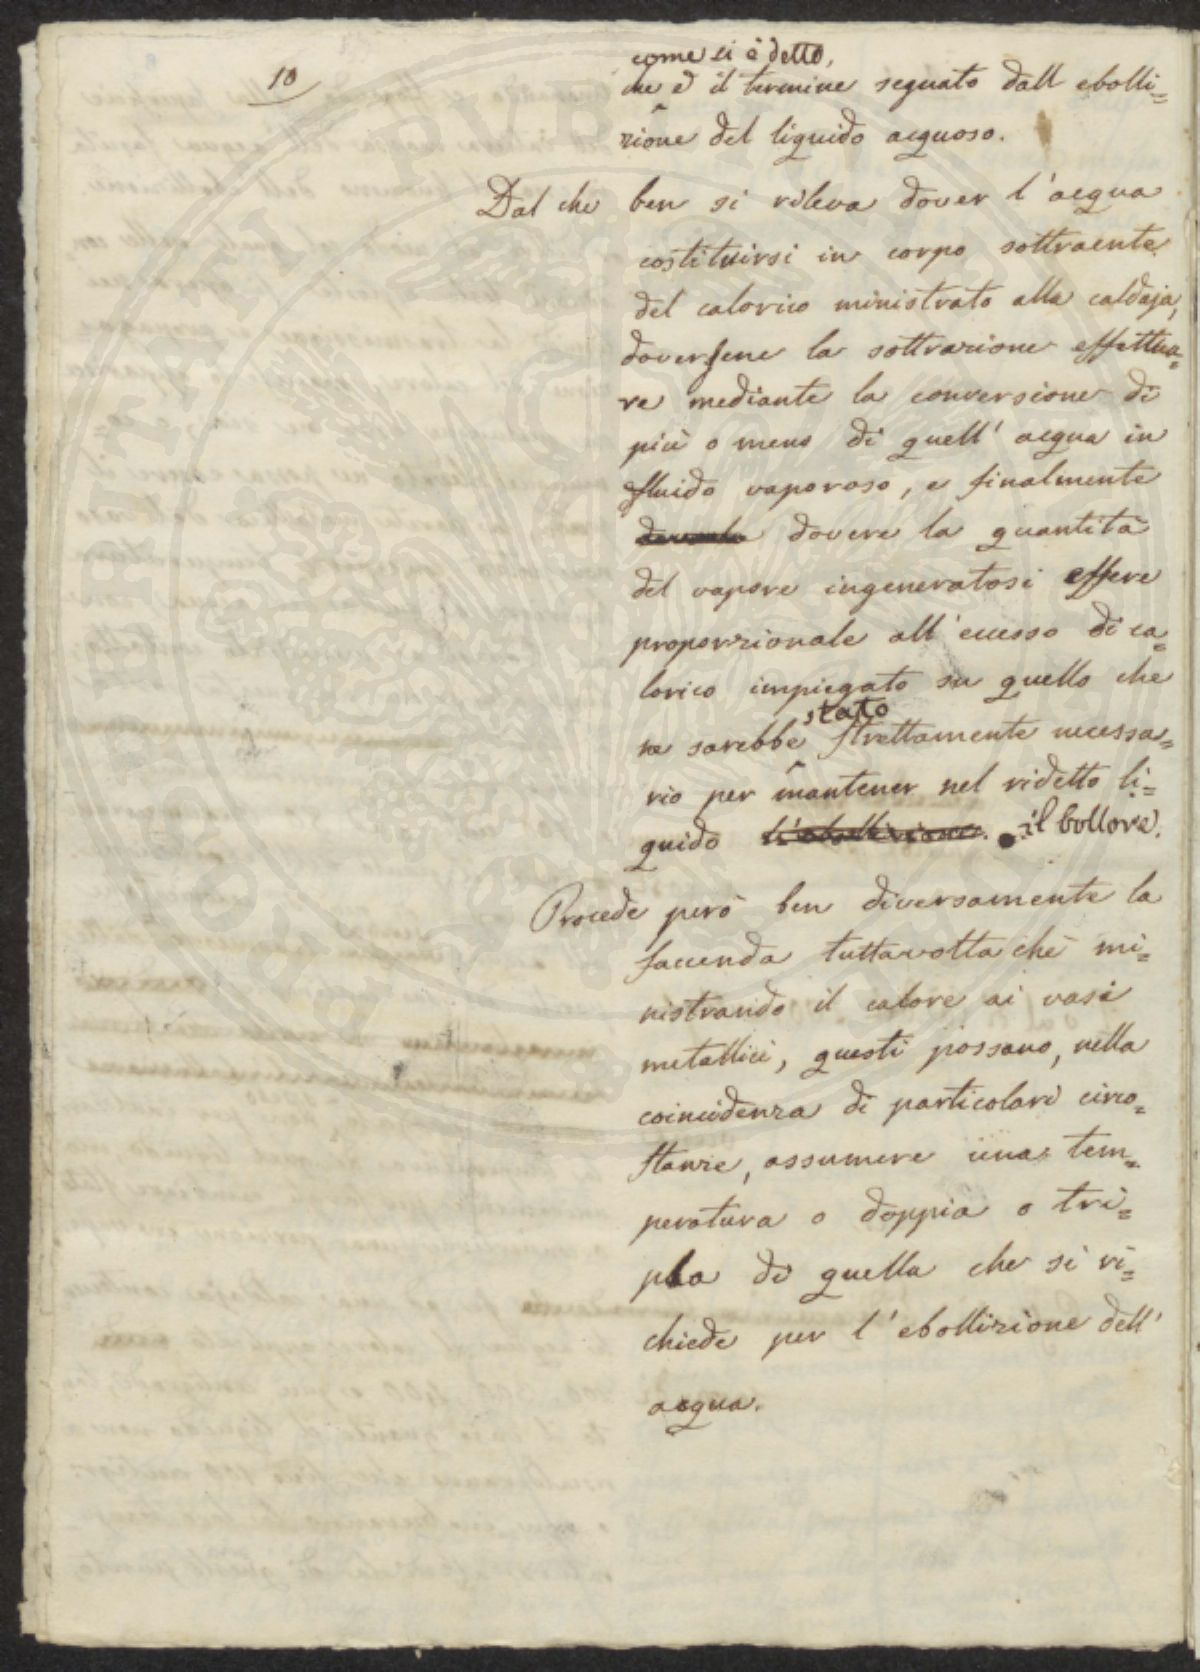 10
come si è detto,
che è il termine segnato dall ebolli=
zione del liquido acquoso.
Dal che ben si rileva dover l'acqua
costituirsi in corpo sottraente
del calorico ministrato alla caldaja,
doversene la sottrazione effettua=
re mediante la conversione di
più o meno di quell' acqua in
fluido vaporoso, e finalmente
dovere la quantità
del vapore ingeneratosi essere
proporzionale all'eccesso di ca=
lorico impiegato su quello che
stato
ne sarebbe strettamente necessa=
rio per mantener nel ridetto li=
quido l'ebollizione. il bollore.
Procede però ben diversamente la
faccenda tuttavolta che mi=
nistrando il calore ai vasi
metallici, questi possano, nella
coincidenza di particolari circo=
stanze, assumere una tem=
peratura o doppia o tri=
pla di quella che si ri=
chiede per l'ebollizione dell'
acqua.